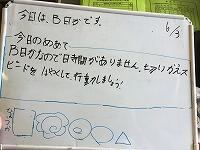 今日は、B日かです。
6/3
今日のめあて
B日かなので日寺間がありません。ちゃりかえス
ピードをはやくして、行動しましょう!